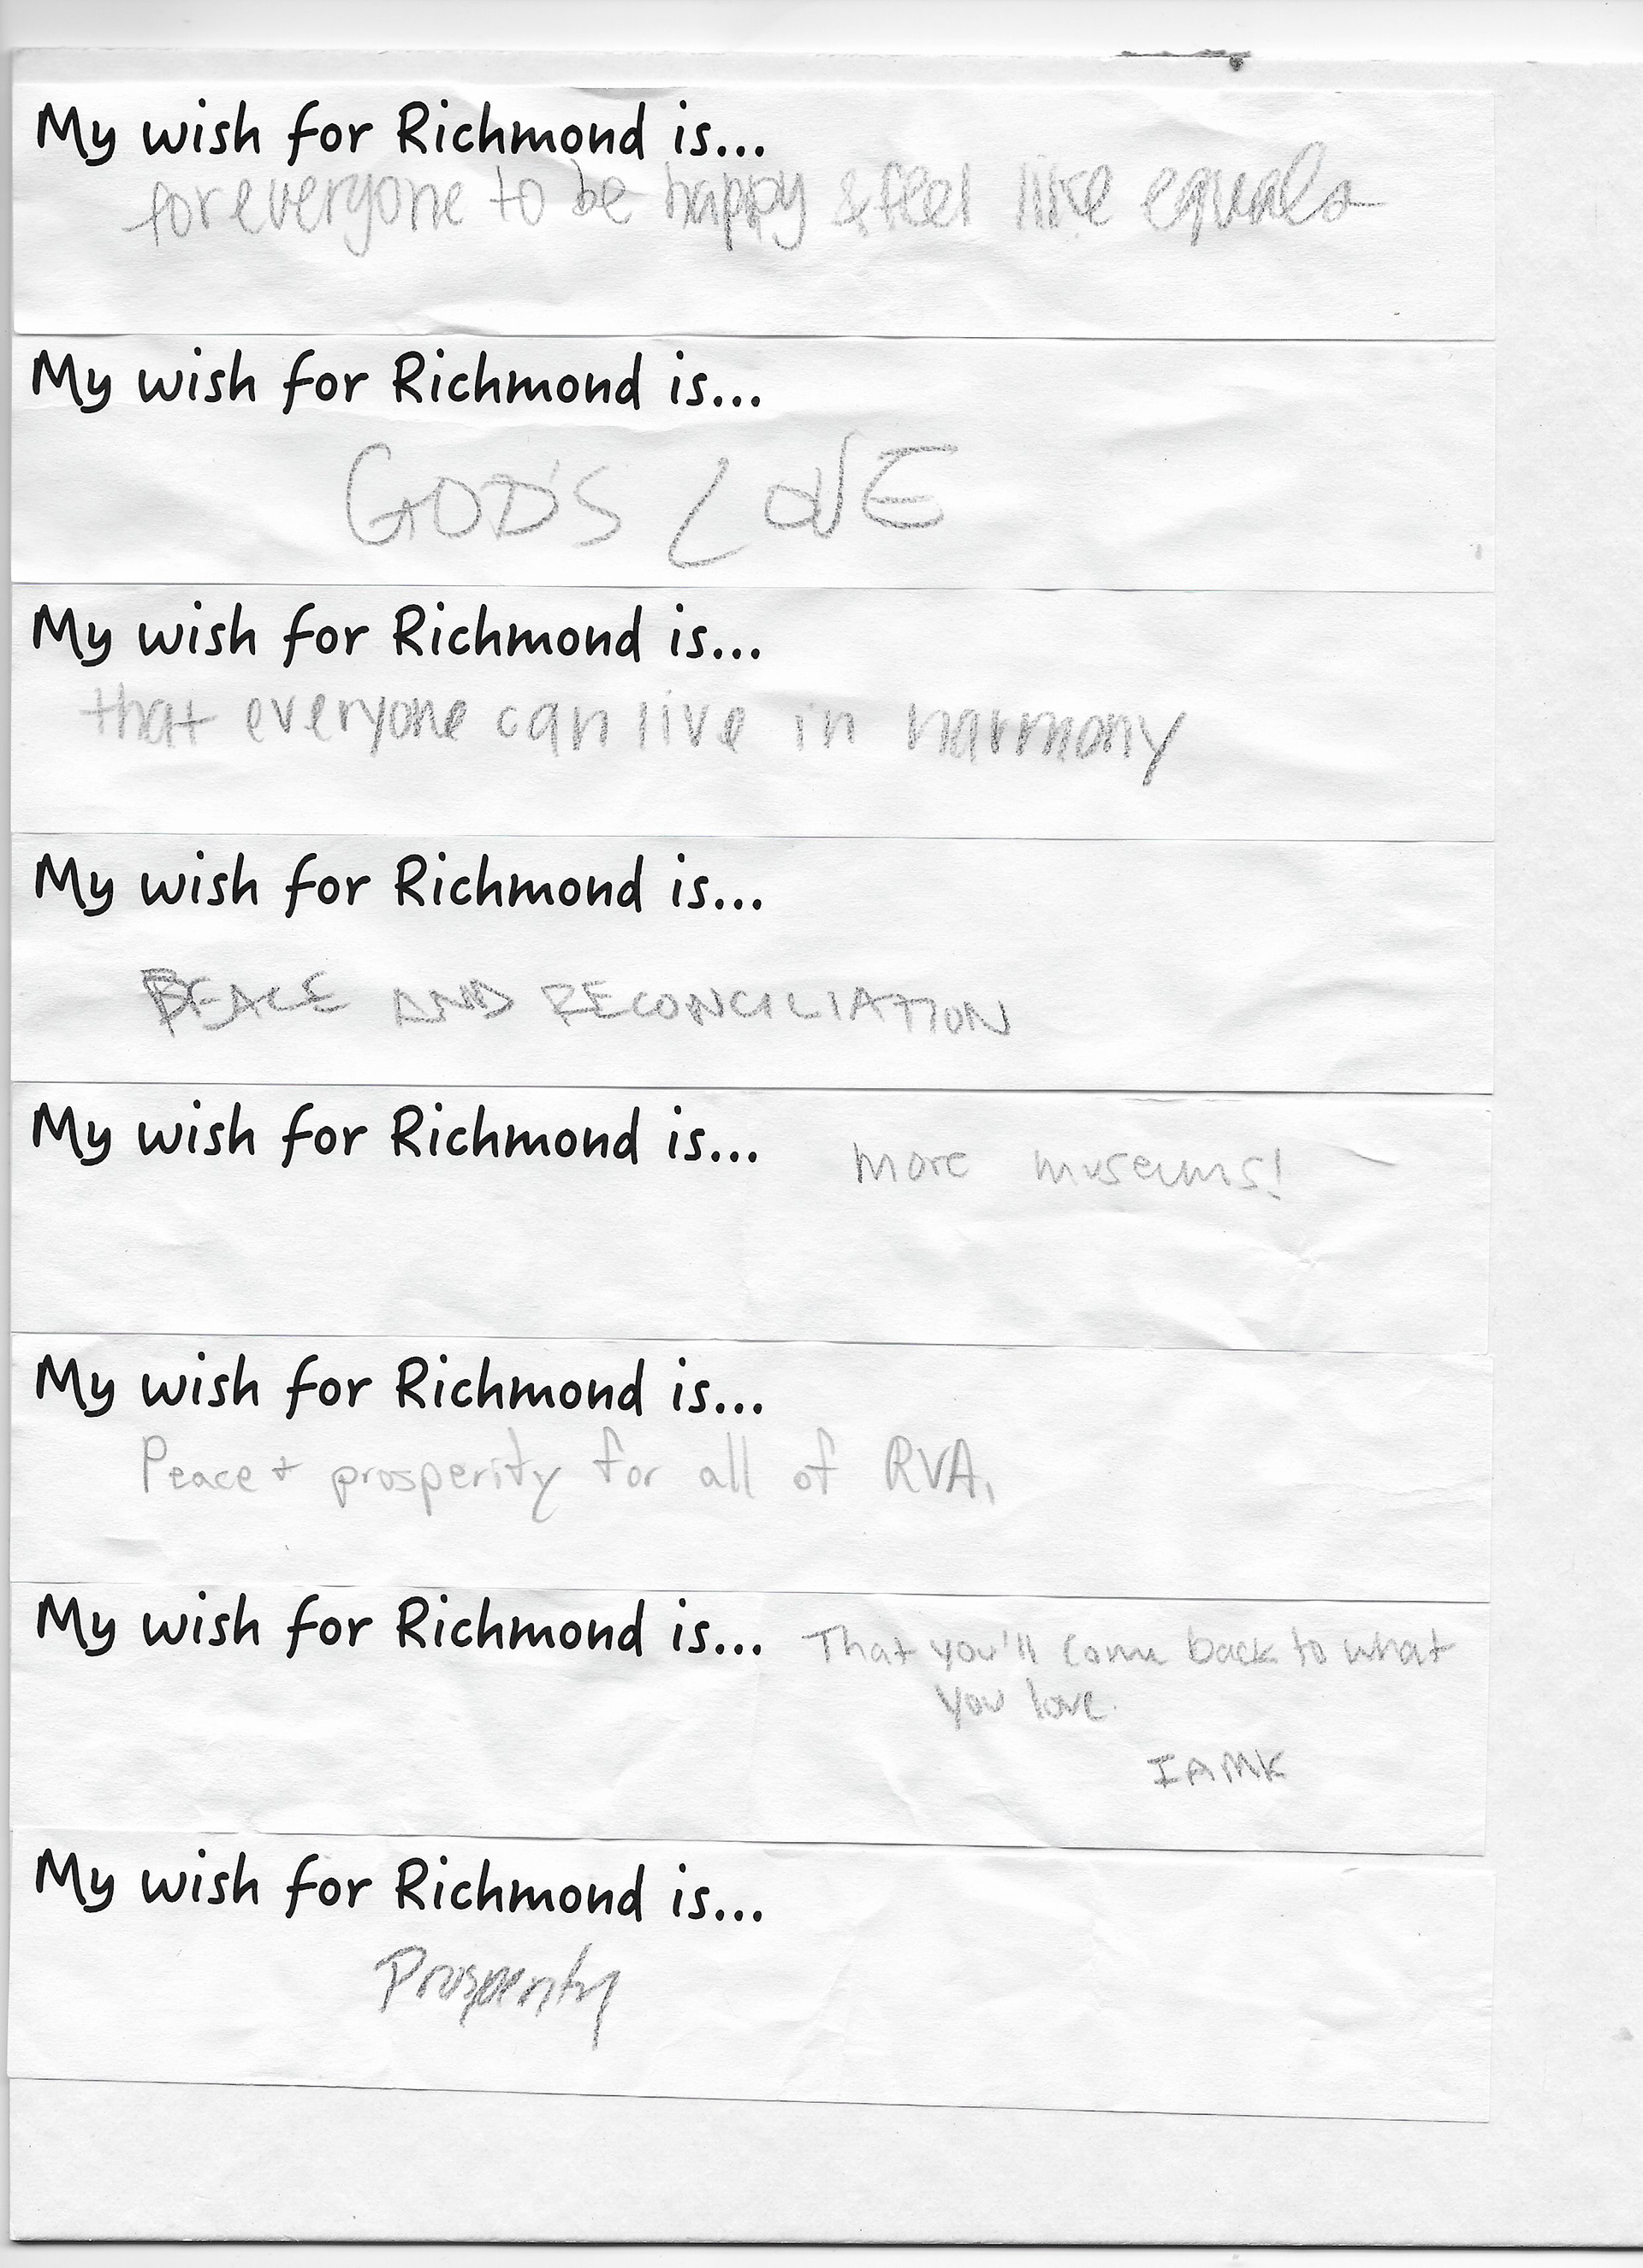 My wish for Richmond is...
for everyone to be happy & feel like equals
My wish for Richmond is...
GOD'S LOVE
My wish for Richmond is...
that everyone can live in harmony
My wish for Richmond is...
PEACE AND RECONCILIATION
My wish for Richmond is... more museums!
My wish for Richmond is...
Peace + prosperity for all of RVA.
My wish for Richmond is... That you'll come back to what
you love.
IAMK
My wish for Richmond is...
Prosperity